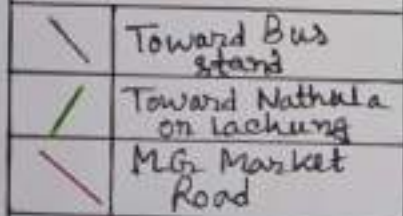 Toward Bus
stand
Toward Nathula
or Lachung
M.G. Market
Road